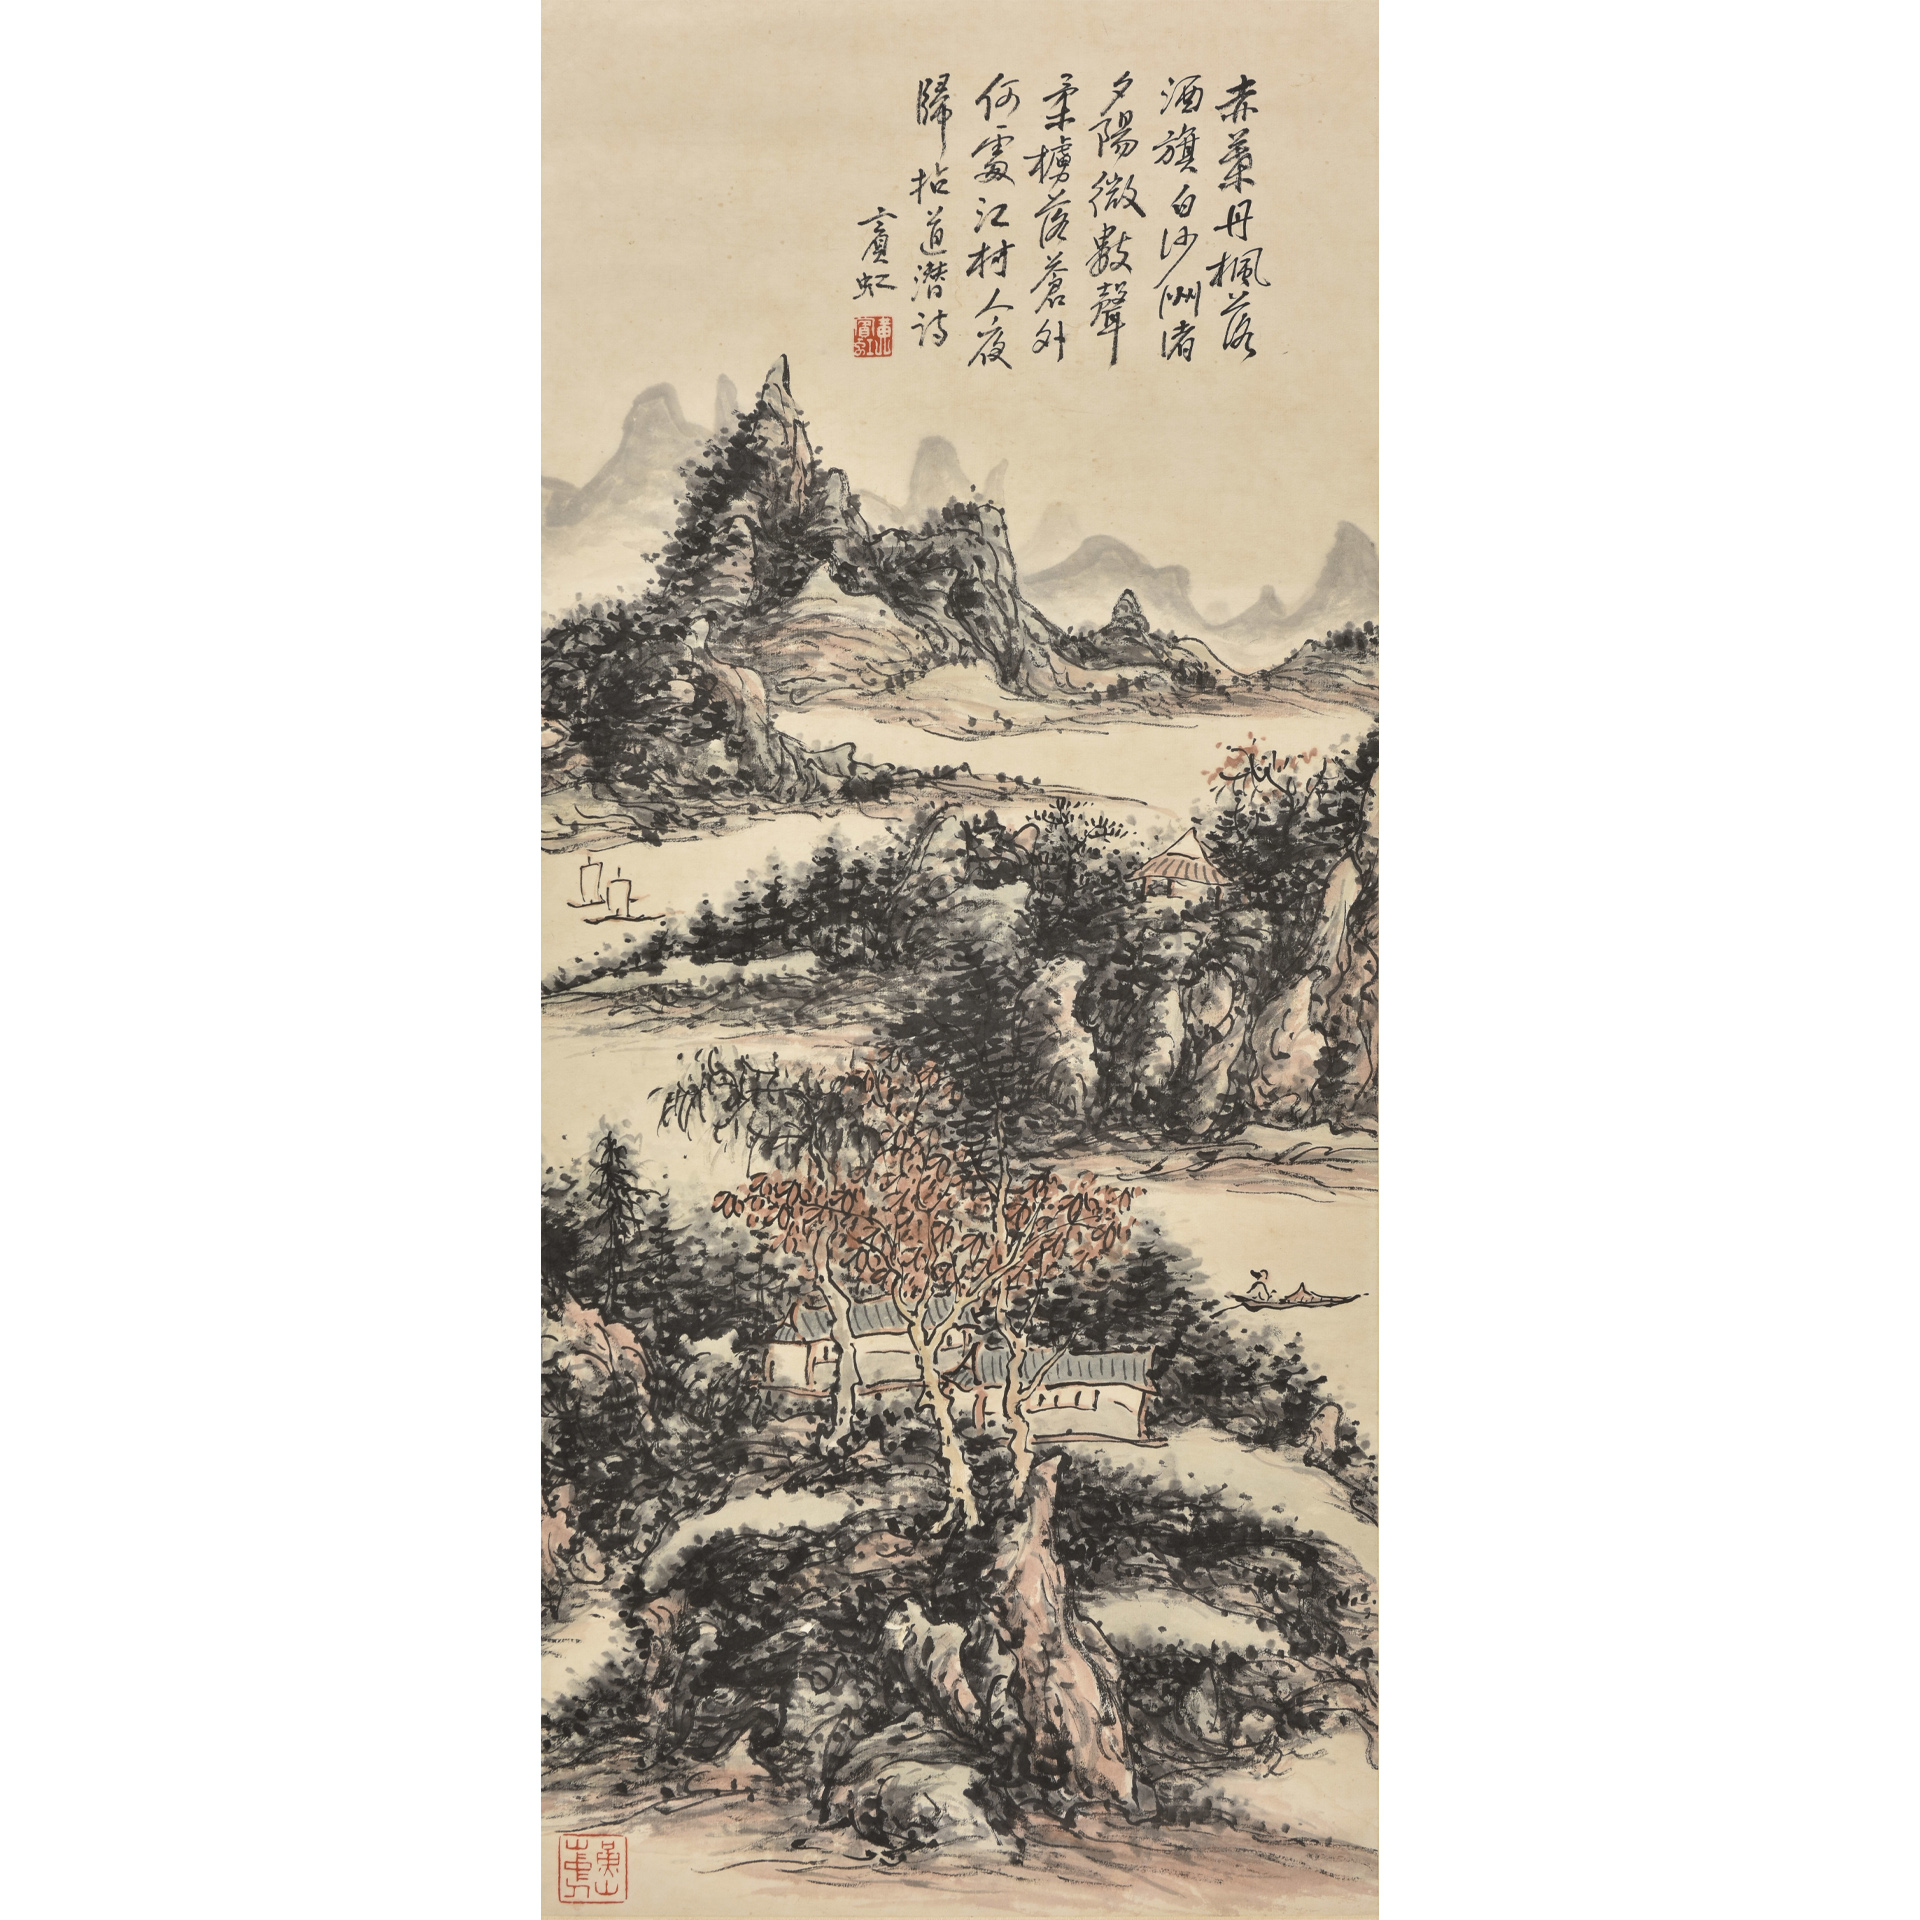 赤葉丹楓落
酒旗白沙洲渚
夕陽微數聲
柔櫓落蒼外
何處江村人夜
歸 拈道潜詩
賓虹
黃賓虹